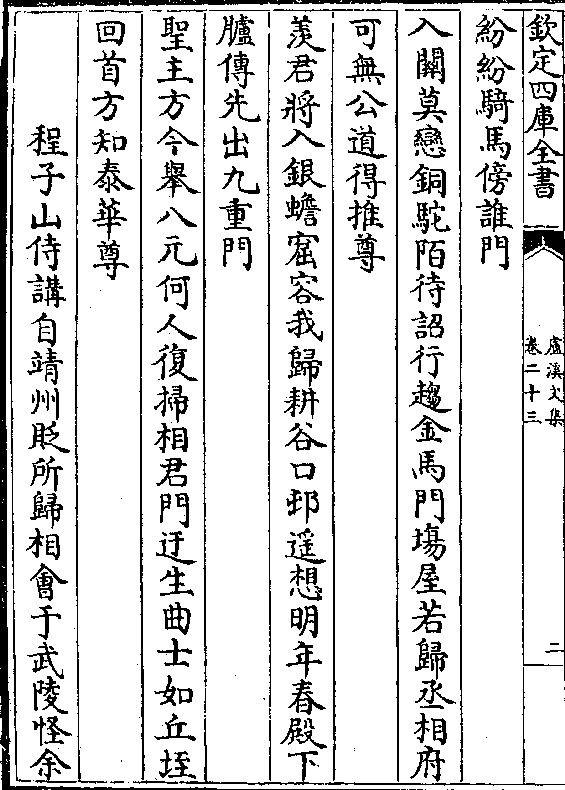 欽定四庫全書
盧溪文集
卷二十三
二
紛紛騎馬傍誰門
入關莫戀銅駝陌待詔行趨金馬門塲屋若歸丞相府
可無公道得推尊
羨君將入銀蟾窟容我歸耕谷口邨遥想明年春殿下
臚傳先出九重門
聖主方今舉八元何人復掃相君門迂生曲士如丘垤
回首方知泰華尊
程子山侍講自靖州貶所歸相會于武陵怪余